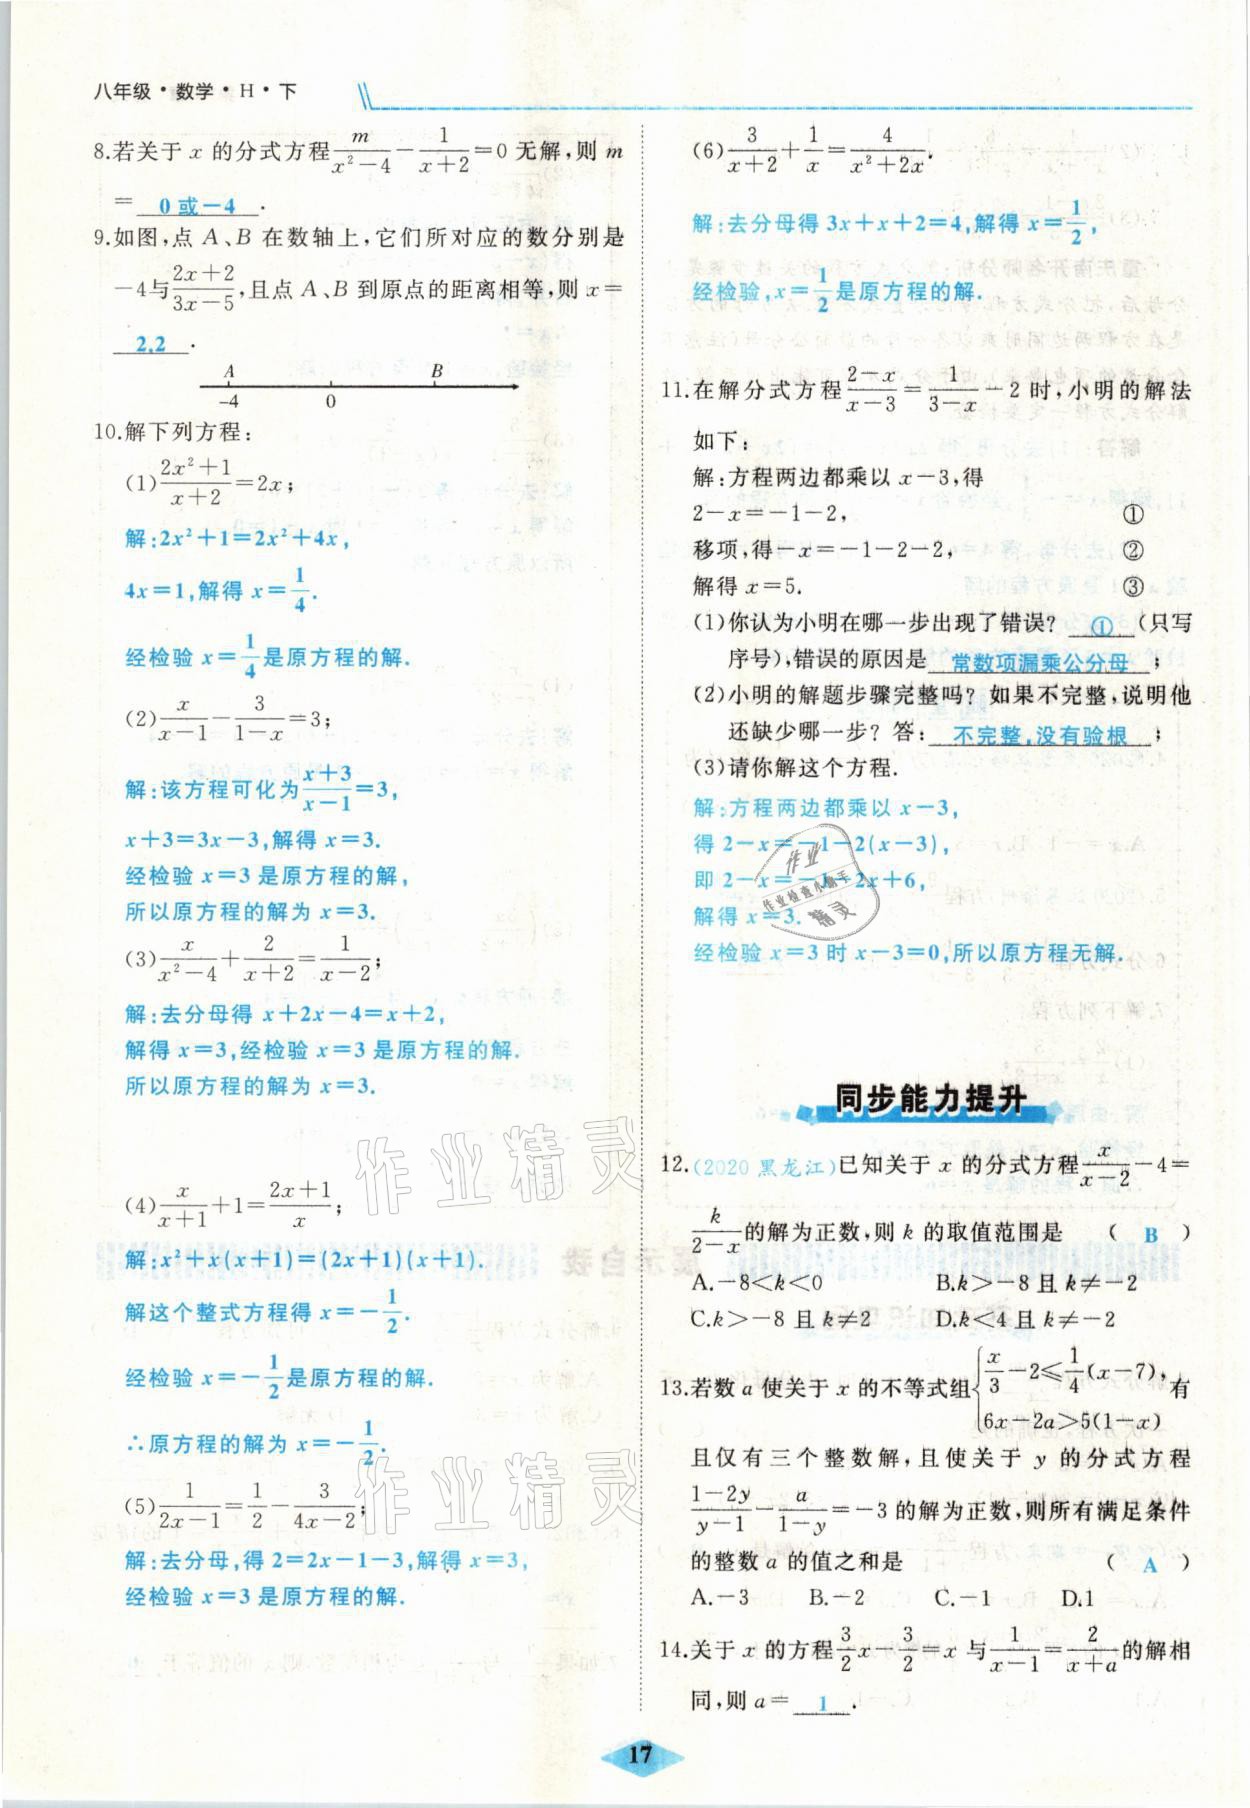 八年级·数学·H·下
8.若关于 x 的分式方程 m/(x²-4) - 1/(x+2) =0 无解,则 m
= 0或-4 .
9.如图,点 A、B 在数轴上,它们所对应的数分别是
-4与 (2x+2)/(3x-5) ,且点 A、B 到原点的距离相等,则 x=
2.2 .
A B
-4 0
10.解下列方程:
(1) (2x²+1)/(x+2) =2x;
解:2x²+1=2x²+4x,
4x=1,解得 x= 1/4 .
经检验 x= 1/4 是原方程的解.
(2) x/(x-1) - 3/(1-x) =3;
解:该方程可化为 (x+3)/(x-1) =3,
x+3=3x-3,解得 x=3.
经检验 x=3 是原方程的解,
所以原方程的解为 x=3.
(3) x/(x²-4) + 2/(x+2) = 1/(x-2) ;
解:去分母得 x+2x-4=x+2,
解得 x=3,经检验 x=3 是原方程的解.
所以原方程的解为 x=3.
(4) x/(x+1) +1= (2x+1)/x ;
解:x²+x(x+1)=(2x+1)(x+1).
解这个整式方程得 x=- 1/2 .
经检验 x=- 1/2 是原方程的解.
∴原方程的解为 x=- 1/2 .
(5) 1/(2x-1) = 1/2 - 3/(4x-2) ;
解:去分母,得 2=2x-1-3,解得 x=3,
经检验 x=3 是原方程的解.
(6) 3/(x+2) + 1/x = 4/(x²+2x) .
解:去分母得 3x+x+2=4,解得 x= 1/2 ,
经检验,x= 1/2 是原方程的解.
11.在解分式方程 (2-x)/(x-3) = 1/(3-x) -2 时,小明的解法
如下:
解:方程两边都乘以 x-3,得
2-x=-1-2, ①
移项,得-x=-1-2-2, ②
解得 x=5. ③
(1)你认为小明在哪一步出现了错误? ① (只写
序号),错误的原因是 常数项漏乘公分母 ;
(2)小明的解题步骤完整吗?如果不完整,说明他
还缺少哪一步?答: 不完整,没有验根 ;
(3)请你解这个方程.
解:方程两边都乘以 x-3,
得 2-x=-1-2(x-3),
即 2-x=-1-2x+6,
解得 x=3.
经检验 x=3 时 x-3=0,所以原方程无解.
作业
作业检查小助手
精灵
同步能力提升
12.(2020 黑龙江)已知关于 x 的分式方程 x/(x-2) -4=
k/(2-x) 的解为正数,则 k 的取值范围是 ( B )
A.-8<k<0 B.k>-8 且 k≠-2
C.k>-8 且 k≠2 D.k<4 且 k≠-2
13.若数 a 使关于 x 的不等式组 { x/3 -2≤ 1/4 (x-7), 6x-2a>5(1-x) 有
且仅有三个整数解,且使关于 y 的分式方程
(1-2y)/(y-1) - a/(1-y) =-3 的解为正数,则所有满足条件
的整数 a 的值之和是 ( A )
A.-3 B.-2 C.-1 D.1
14.关于 x 的方程 3/2 x- 3/2 =x 与 1/(x-1) = 2/(x+a) 的解相
同,则 a= 1 .
作业精灵
作业精灵
17